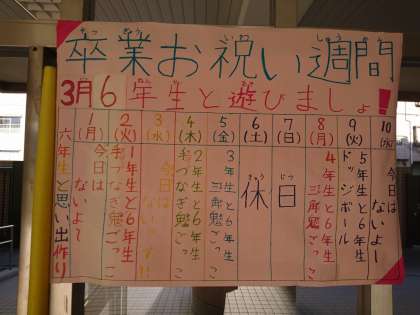 卒業お祝い週間
3月6年生と遊びましょ!
1(月)
2(火)
3(水)
4(木)
5(金)
6(土)
7(日)
8(月)
9(火)
10(水)
六年生と思い出作り
今日は
ないよ~
1年生と6年生
手つなぎ鬼ごっこ
今日は
2年生と6年生
手つなぎ鬼ごっこ
3年生と6年生
三角鬼ごっこ
休
日
4年生と6年生
三角鬼ごっこ
5年生と6年生
ドッジボール
今日は
ないよ~